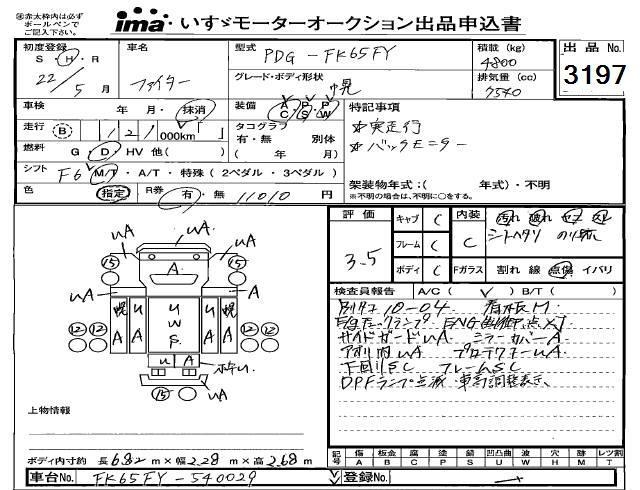 ㊟赤太枠内は必ず
ボールペンで
ご記入下さい。
ima いすゞモーターオークション出品申込書
初度登録
S・H・R
22/5月
車名
ファイター
型式
PDG-FK65FY
グレード・ボディ形状
幌
積載 (kg)
4800
排気量 (cc)
7540
出品 No.
3197
車検 年・月・抹消
装備 A/C P/S P/W
走行 B 121,000km「 」
タコグラフ 有・無 別体
( 年 月)
燃料 G・D・HV 他( )
シフト F6 M/T・A/T・特殊 (2ペダル・3ペダル)
色 指定
R券 有・無 11010円
特記事項
☆実走行
☆バックモニター
架装物年式:( 年式)・不明
※不明の場合は、不明に○をする。
評価
3.5
キャブ C
フレーム C
ボディ C
内装 C
汚れ 破れ
シートヘタリ
Fガラス 割れ 線 点傷 イバリ
検査員報告 A/C ( ✓ ) B/T ( )
看板M
サイドガードuA ミラーカバーA
アオリ内uA プロテクターuA
下回りSC フレームSC
DPFランプ点滅
uA uA
uA uA
⑮ A ⑮
A A
幌 A u W S A 幌 A
⑫ ⑫ ⑫ ⑫
u A
⑮ uA
上物情報
ボディ内寸約 長 6.82 m×幅 2.28 m×高 2.68 m
記号 傷 板金 腐 塗 錆 凹凸曲 波 穴 跡 レツ割
A B C P S U W H M T
車台No. FK65FY-540029
登録No.